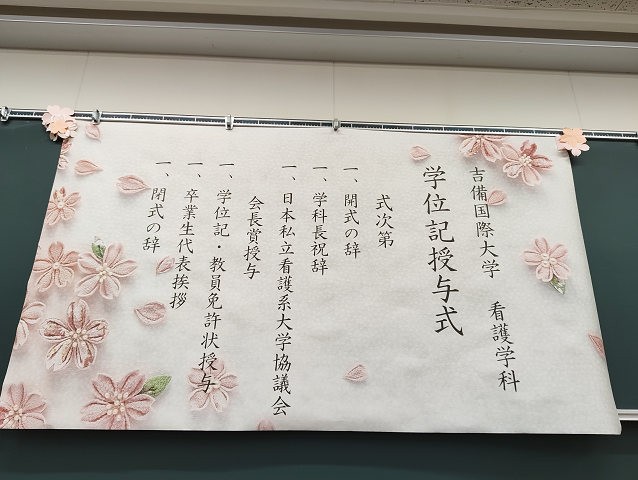 吉備国際大学　看護学科
学位記授与式
式次第
一、開式の辞
一、学科長祝辞
一、日本私立看護系大学協議会
会長賞授与
一、学位記・教員免許状授与
一、卒業生代表挨拶
一、閉式の辞